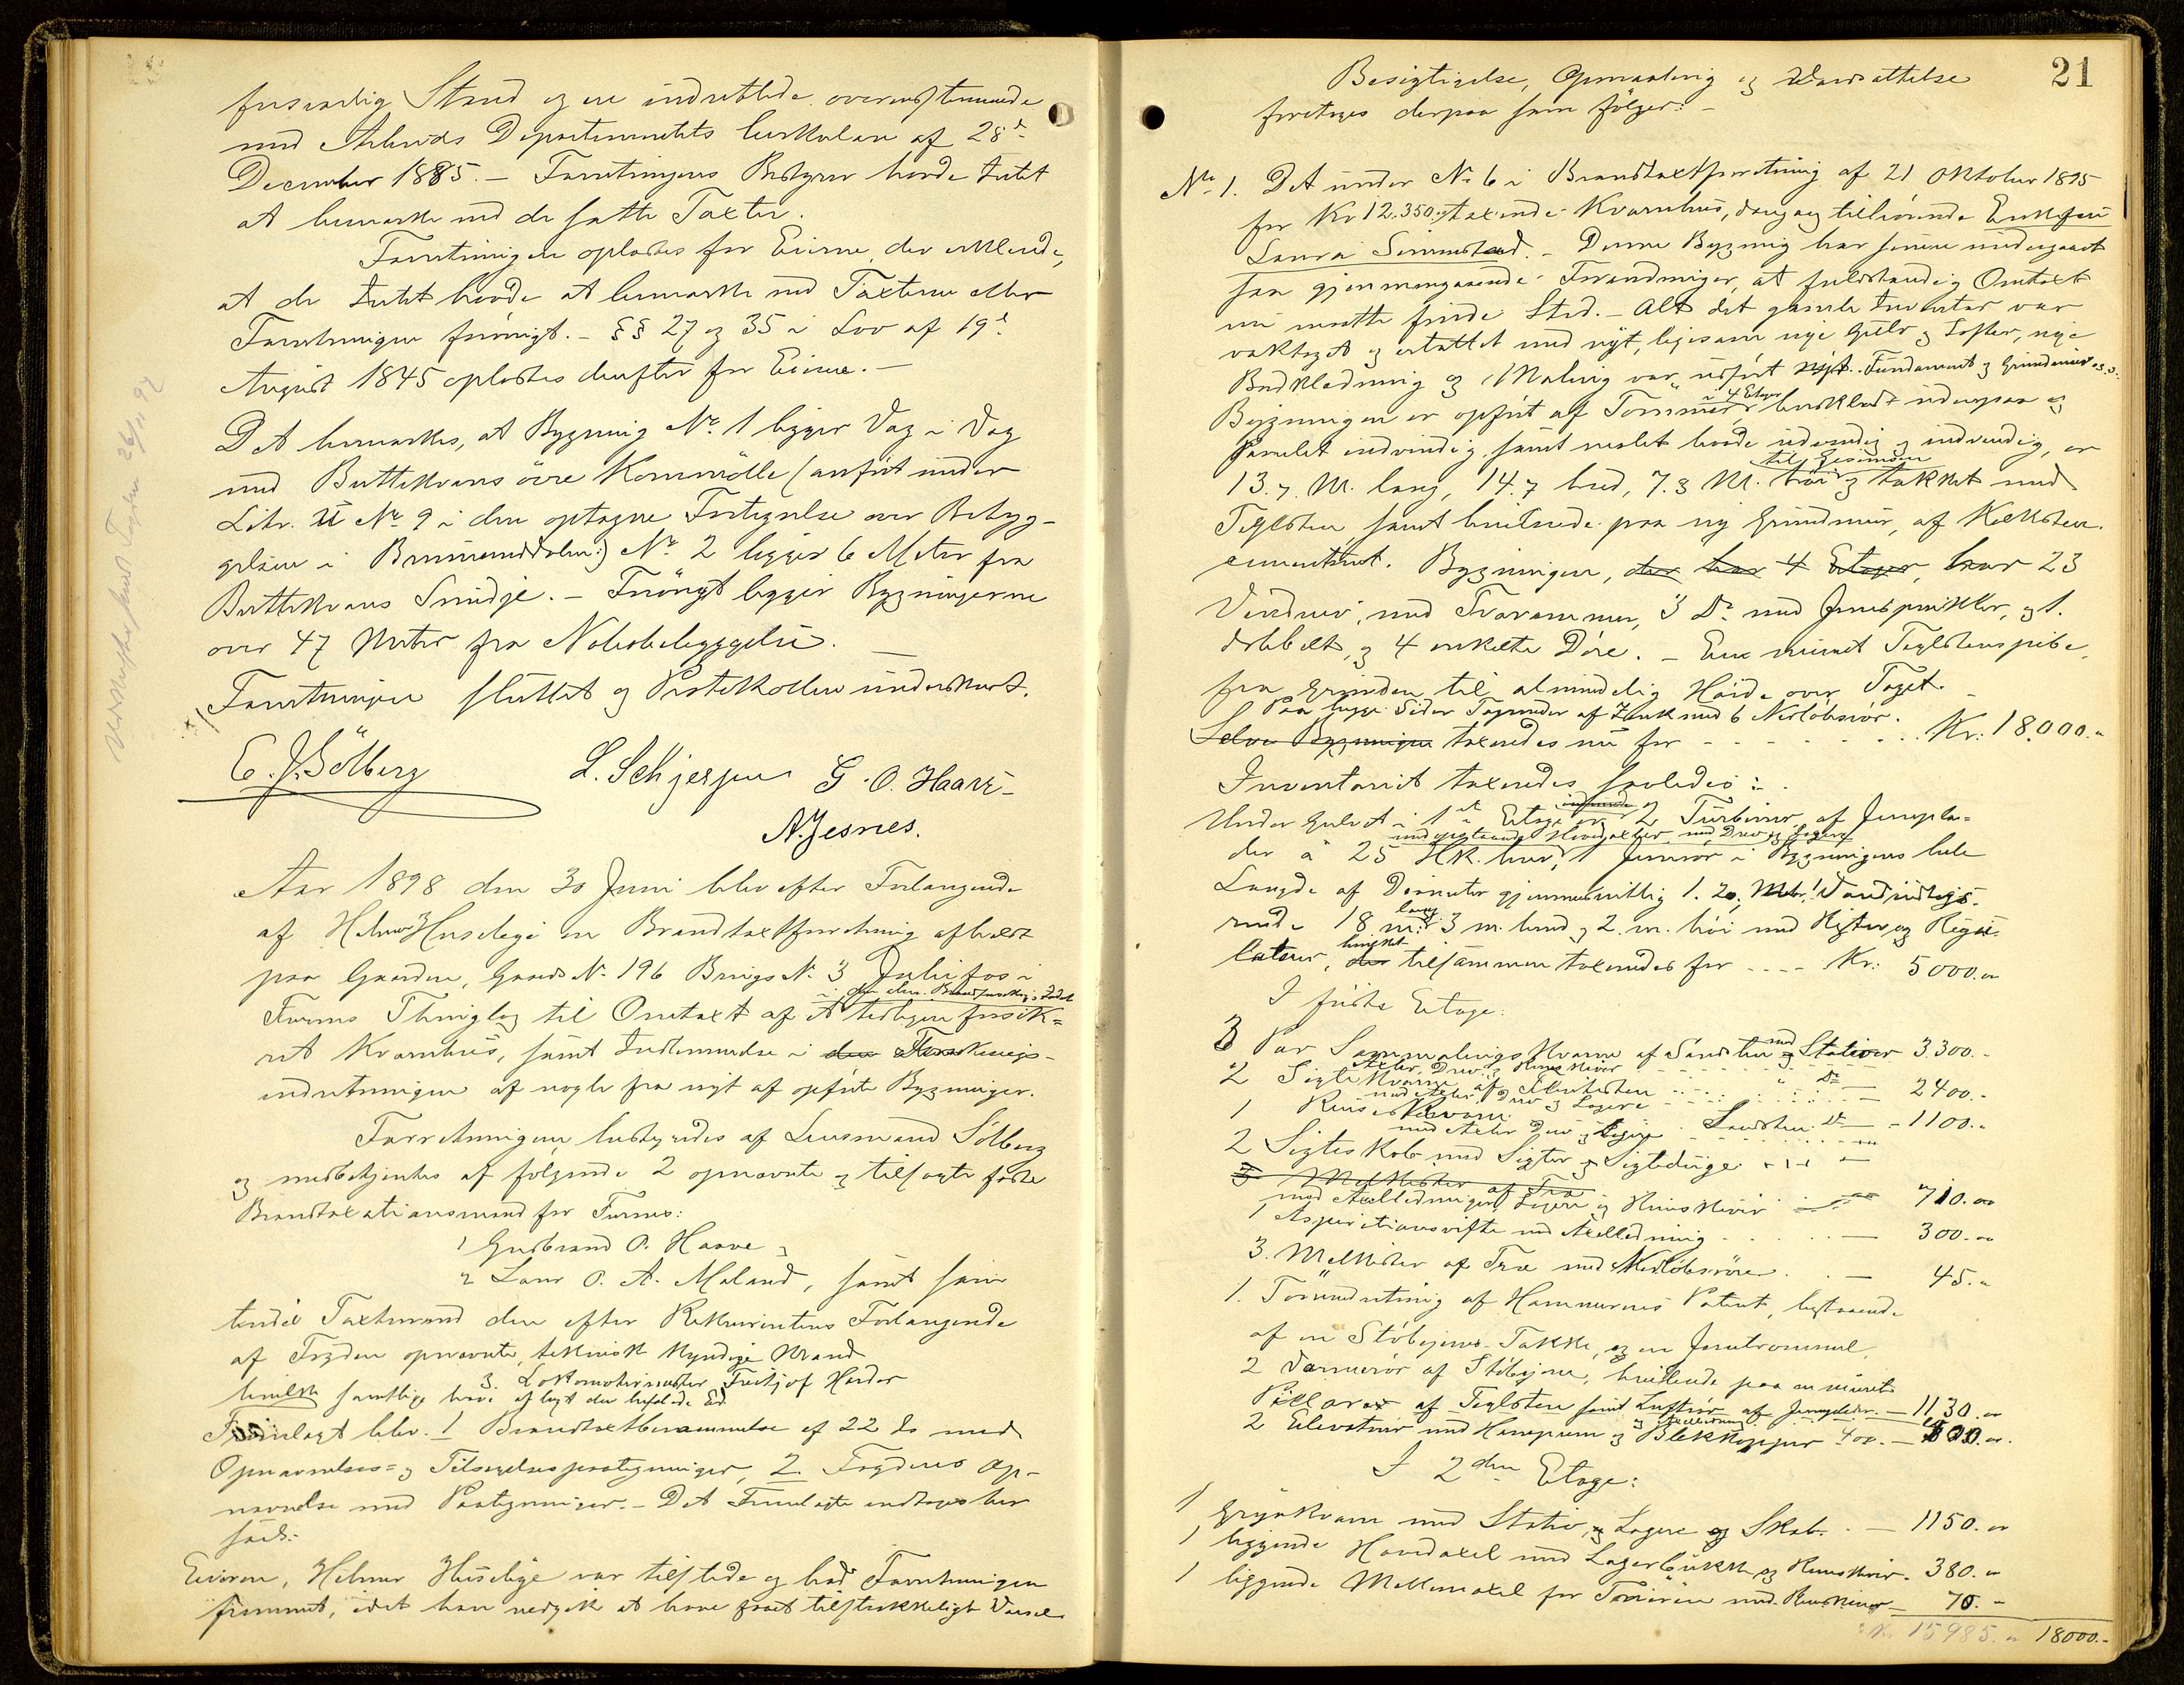 forsvarlig Stand og er indrettede overensstemmende
med Arbeids Departementets Cirkulære af 28de
December 1885. – Forretningens Bestyrer havde Intet
at bemærke ved de satte Taxter.
Forretningen oplæstes for Eierne, der erklærede,
at de Intet havde at bemærke ved Taxterne eller
Forretningen forøvrigt. – §§ 27 og 35 i Lov af 19de
August 1845 oplæstes derefter for Eierne. –
Det bemærkes, at Bygning No. 1 ligger Væg i Væg
med Buttekværns övre Kornmölle (anført under
Litr. U No. 9 i den optagne Fortegnelse over Bebyg-
gelsen i Brumunddalen:) No. 2 ligger 6 Meter fra
Buttekværns Smidje. – Forövrigt ligger Bygningerne
over 47 Meter fra Nabobebyggelse. –
Forretningen sluttet og Protokollen underskrevet.
E. J. Sölberg L. Schjerpen G. O. Haave
N. Jesnes.
Aar 1898 den 30 Juni blev efter Forlangende
af Helmer Huselege en Brandtaxtforretning afholdt
paa Gaarden, Gaards No. 196 Brugs No. 3 Julifos i
i den alm. Brandforsikrings Indr.
Furnes Thinglag til Omtaxt af et tidligere forsik-
ret Kværnhus, samt Indlemmelse i den Forsikrings-
indretningen af nogle fra nyt af opførte Bygninger.
Forretningen bestyredes af Lensmand Sölberg
og medbetjentes af følgende 2 opnævnte og tilsagte faste
Brandtaxationsmænd for Furnes:
1 Gudbrand O. Haave
2 Lars O. A. Mæland, samt som
tredie Taxtmand den efter Rekvirentens Forlangende
af Fogden opnævnte, teknisk kyndige Mand
3. Lokomotivmester Fritjof Harder
hvilke samtlige have aflagt den befalede Ed.
Fremlagt blev. 1 Brandtaxtberammelse af 22 ds med
Opnævnelses- og Tilsigelsespaategninger, 2. Fogdens Op-
nævnelse med Paategninger. – Det Fremlagte indtages her
saal:
Eieren, Helmer Huselege var tilstede og bad Forretningen
fremmet, idet han vedgik at have faaet tilstrækkeligt Varsel
Verskrift sendt Fogden 26/11 97
21
Besigtigelse, Opmaaling og Værdsættelse
foretoges derpaa som følger: –
No. 1. Det under No. 6 i Brandtaxtforretning af 21 Oktober 1895
for Kr 12.350 taxerede Kværnhus, dengang tilhørende Enkefru
Laura Simenstad. – Denne Bygning har senere undergaaet
saa gjennemgaaende Forandringer, at fuldstændig Omtaxt
nu maatte finde Sted. – Alt det gamle Inventar var
væktaget og erstattet med nyt, ligesom nye Gulv og Lofter, nye
Bordklædning og Maling var udført nyt. Fundament og Grundmur o.s.v.
i 4 Etager
Bygningen er opført af Tömmer, bordklædt udenpaa og
panelet indvendig, samt malet baade udvendig og indvendig, er
til Gesimsen
13.7 M. lang, 14.7 bred, 7.3 M. høi og tækket med
Teglsten, samt hvilende paa ny Grundmur, af Kalksten
cementeret. Bygningen, der har 4 Etager, har 23
Vinduer, med Tværammer, 3 Do med Jernsprinkler, og 1.
dobbelt, og 4 enkelte Döre. – Een muret Teglstenspibe,
fra Grunden til almindelig Høide over Taget.
Paa begge Sider Tagrender af Zink med 6 Nedløbsrör.
Selve Bygningen taxeredes nu for - - - - Kr: 18.000.-
Inventariet taxeredes saaledes:
Under Gulvet i 1ste Etage er 2 Turbiner af Jernpla-
med opstaaende Hovedaxler, med Drev og Lagere
der à 25 HK. hver, 1 Jernrör i Bygningens hele
Længde af Diameter gjennemsnitlig 1.20, Mtr, 1 Vandindtags-
rende 18 m. lang 3 m. bred og 2. m. høi med Rister og Regu-
latorer, hvilket tilsammen taxeredes for - - - - Kr: 5000.-
I første Etage:
3 Par Sammalings Kværne af Sandsten med Stativer 3.300.-
Axler, Drev og Remskiver
2 Sigte Kværne af Flintesten - - Do — 2400.-
med Axler Drev og Lagere
1 Rensekværn Sandsten Do — 1100.-
med Axler Drev og Lagere
2 Sigteskab med Sigter og Sigteduge
3 Melkister af Træ
med Axelledninger, Lagere og Remskiver — 710.-
1 Aspirationsvifte med Axelledning — 300.-
3. Melkister af Træ med Nedløbsröre — 45.-
1. Törreindretning af Hammernes Patent, bestaaende
af en Støbejerns-Takke, og en Jerntrommel,
2 Varmerör af Støbejern, hvilende paa en muret
Pillarer af Teglsten samt Luftrör af Jernplader. — 1130.-
og Axelledning
2 Elevatorer med Hamprem og Blekkopper 400. — 500.-
I 2den Etage:
1 Grynkværn med Stativ, og Lagere og Skab. — 1150.-
1 liggende Hovedaxel med Lagerbukke og Remskiver. 380.-
1 liggende Mellemaxel for Törreriene med Remskiver — 70.-
Kr. 15985.- 18000.-